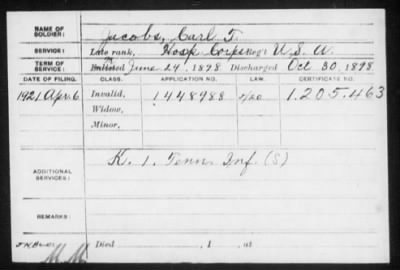 NAME OF SOLDIER: Jacobs, Carl T.
SERVICE: Late rank, Hosp. Corps Reg't U. S. A.
TERM OF SERVICE: Enlisted June 24, 1898 Discharged Oct 30, 1898
DATE OF FILING. CLASS. APPLICATION NO. LAW. CERTIFICATE NO.
1921 Apr 6 Invalid, 1448988 1.205.463
Widow,
Minor,
ADDITIONAL SERVICES: K. 1. Tenn. Inf. (S)
REMARKS:
Died , 1 , at
M M